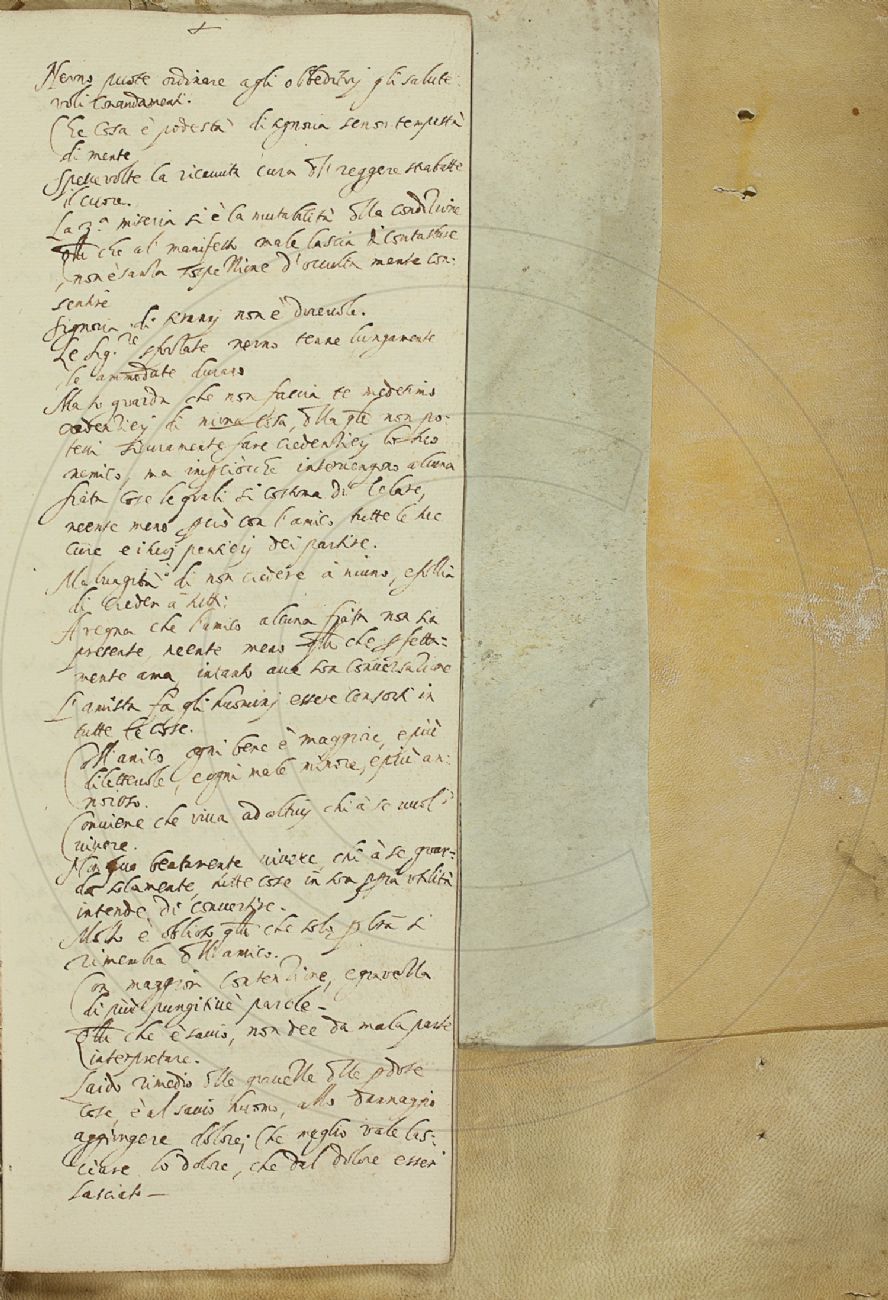 Nerno puote ordinare agli obbedienti gli salute
voli Comandamenti.
Che Cosa è podestà di signoria senon tempestà
di mente
Spesse volte la ricevuta cura di reggere sbatte
il cuore.
La 3.a miseria si è la mutabilità della condizione
Quelli che al manifesto male lascia di contastare
non è sanza sospezione d'occulta mente con:
sentire
Signoria di tiranni non è durevole.
Le Sig.rie sforzate nerno tenne lungamente
le ammodate durano
Ma to guarda che non faccia te medesimo
credenzieri di niuna Cosa, della quale non po:
tessi sicuramente fare credenzieri lo tuo
nemico, ma imperciocchè intervengono alcuna
fiata cose le quali si costuma di Celare,
neente meno perciò con l'amico tutte le tue
cure e i tuoi pensieri dei partire.
Malvagità è di non credere à niuno, e follia
di creder à tutti:
Avegna che l'amico alcuna fiata non sia
presente, neente meno quelli che perfetta=
mente ama, intanto ave son conversazione
L'amistà fa gli huomini essere consorti in
tutte le cose.
Con l'amico ogni bene è maggiore, e più
dilettevole, e ogni male minore, e più an:
noroso.
Conviene che viva ad altrui chi à se vuol
vivere.
Non può beatamente vivere chi à se guar=
da solamente, tutte cose in son propria utilità
intende di convertire.
Molto è oblioso quelli che solo per libra si
rimembra dell'amico.
Con maggior contenzione, e gravezza
di più pungitive parole -
Quelli che è savio, non dee da mala parte
interpretare.
Laido rimedio delle gravezze delle perdute
cose, è al savio huomo, allo dannaggio
aggiungere dolore; Che meglio vale las:
ciare lo dolore, che dal dolore esser
lasciato —